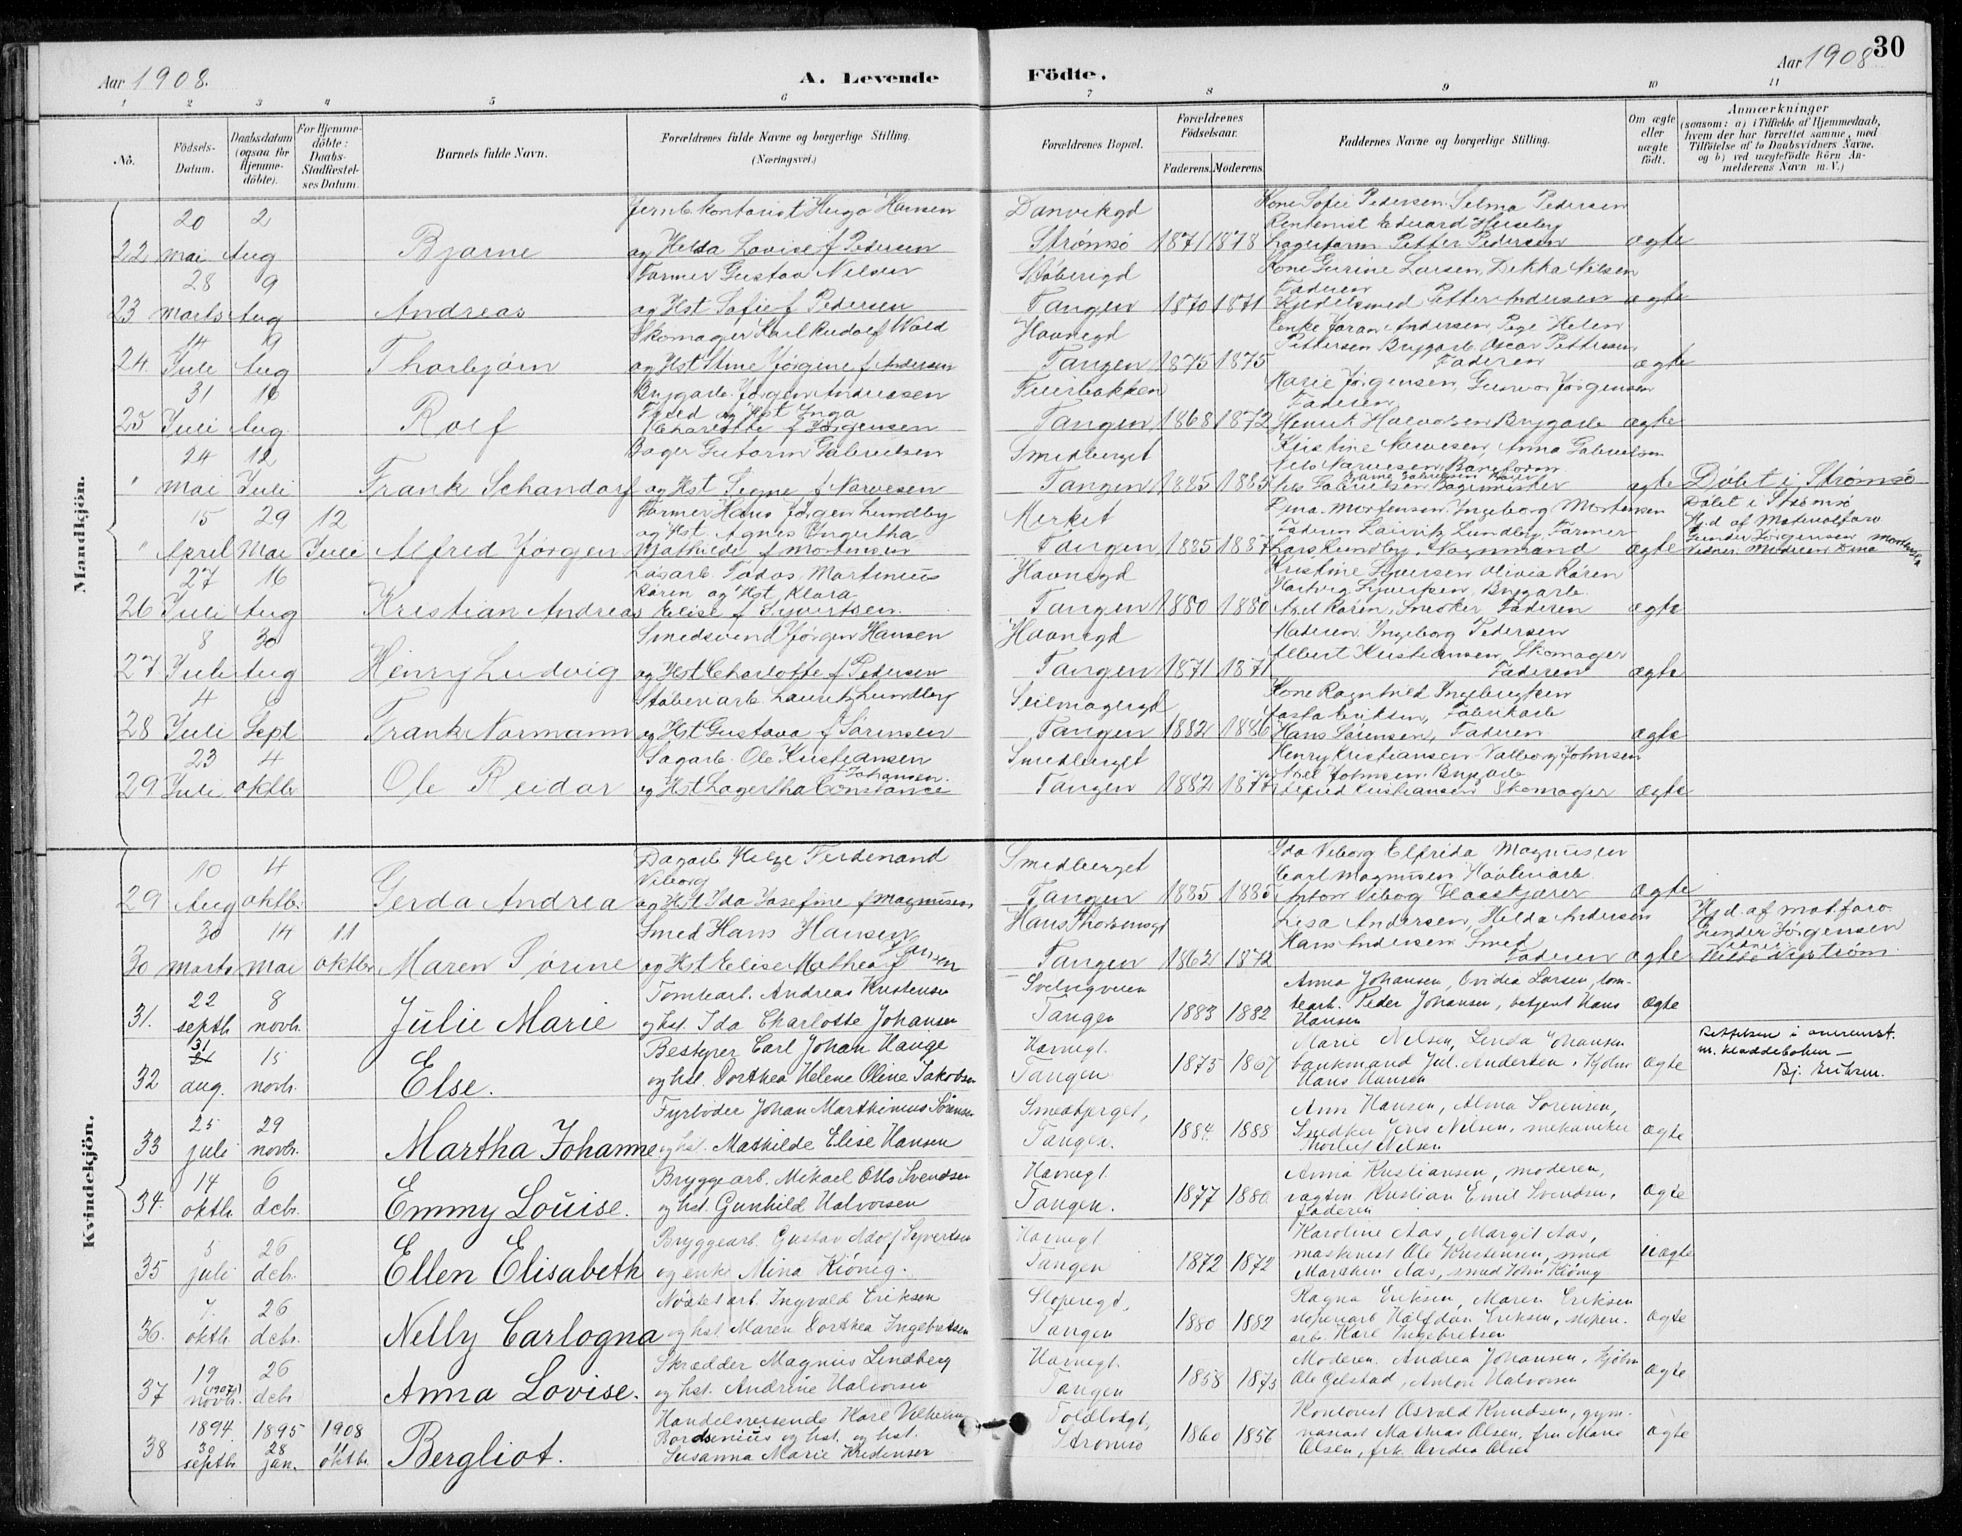 Aar 1908.
A. Levende
Födte.
Aar 1908
30
1 2 3 4 5 6 7 8 9 10 11
No.
Födsels-Datum.
Daabsdatum (ogsaa för Hjemme-döbte).
For Hjemme-döbte: Daabs-Stadfæstel-ses Datum.
Barnets fulde Navn.
Forældrenes fulde Navne og borgerlige Stilling.
(Næringsvei.)
Forældrenes Bopæl.
Forældrenes Födselsaar.
Faderens.
Moderens.
Faddernes Navne og borgerlige Stilling.
Om ægte eller uægte födt.
Anmærkninger
(saasom: a) i Tilfælde af Hjemmedaab, hvem der har forrettet samme, med Tilföielse af to Daabsvidners Navne, og b) ved uægtefödte Börn An-melderens Navn m. V.)
Mandkjön.
22 20 mai 2 Aug Bjarne
Jernb. kontorist Hugo Hansen
og Hilda Lovise f Pedersen
Danvikgd Strømsø 1871 1878
Kone Sofie Pedersen. Selma Pedersen
Rentenist Edvard Huseby
Lagerform. Petter Pedersen ægte
23 28 marts 9 Aug Andreas
Farmer Gustav Nilsen
og Hst Sofie f Pedersen
Støberigd Tangen 1870 1871
Kone Gurine Larsen, Dekka Nilsen
Faderen
Kjedelsmed Petter Andersen ægte
24. 14 Juli 9 Aug Thorbjørn
Skomager Karl Rudolf Wold
og Hst Stine Jørgine f Andersen
Havnegd Tangen 1875 1875
Enke Joran Andersen Pige Helen
Pettersen Bryggarb Oscar Pettersen
Faderen ægte
25 31 Juli 16 Aug Rolf
Bryggarb. Jørgen Andreasen
og Hst Inga
Charlotte f Jørgensen
Feierbakken Tangen 1868 1872
Marie Jørgensen, Gunvor Jørgensen
Faderen
Henrik Halvorsen Bryggarb ægte
" 24 mai 12 Juli Frank Schandorf
Bager Gutorm Gabrielsen
og Hst Signe f Narvesen
Smedberget Tangen 1885 1885
Kristine Narvesen, Anna Gabrielsen
Nils Narvesen
Gabrielsen Bagermester ægte
Døbt i Strømsø
" 15 April 29 Mai 12 Juli Alfred Jørgen
Farmer Hans Jørgen Lundby
og Hst Agnes Ingertha
Mathilde f Mortensen
Merket Tangen 1885 1887
Dina Mortensen, Ingeborg Mortensen
Faderen Lauritz Lundby, Farmer
Lars Lundby, Sagmand ægte
Døbt i Strømsø
Hjd. af Materialforv
Gunder Jørgensen
Vidner: Moderen Dina Mortensen
26 27 Juli 16 Aug Kristian Andreas
Løsarb. Tobias Martinius
Kåren og Hst Klara
Elise f Syvertsen.
Havnegd Tangen 1880 1880
Kristine Syversen, Olivia Kåren
Hartvig Syversen, Bryggarb
Axel Kåren, Snedker Faderen ægte
27 8 Juli 30 Aug Henry Ludvig
Smedsvend Jørgen Hansen
og Hst Charlotte f Pedersen
Havnegd Tangen 1871 1871
Moderen Ingeborg Pedersen
Albert Kristiansen, Skomager
Faderen ægte
28 4 Juli 6 Sept Frank Normann
Støberiarb. Lauritz Lundby
og Hst Gustava f Sørensen
Seilmagergd Tangen 1882 1886
Kone Ragnhild Ingebrigtsen
Eriksen, Fabrikarb
Hans Sørensen, Faderen ægte
29 23 Juli 4 oktbr Ole Reidar
Sagarb. Ole Kristiansen
og Hst Lagertha Constance Johansen.
Smedberget Tangen 1882 1877
Henry Kristiansen. Valborg Johnsen
Axel Johnsen. Bryggarb
Alfred Kristiansen Skomager ægte
Kvindekjön.
29 10 Aug 4 oktbr. Gerda Andrea
Dagarb Helge Ferdinand
Viborg
og Hst Ida Josefine f Magnusen
Smedberget Tangen 1885 1885
Ida Viborg Elfrida Magnusen
Carl Magnusen Høvleriarb.
Anton Viborg Glasskjærer ægte
30 30 marts 14 mai 11 oktbr Maren Sørine
Smed Hans Hansen
og Hst Elise Mathea f Hansen
Hans Thorsensgd Tangen 1862 1872
Lisa Andersen, Hilda Andersen
Hans Andersen Smed
Faderen ægte
Hjd. af mat.forv.
Gunder Jørgensen
Vidner:
Hilda Nyström
31. 22 septb. 8 novb. Julie Marie
Tomtearb. Andreas Kristensen
og hst. Ida Charlotte Johansen
Svelvigveien Tangen 1883 1882
Anna Johansen, Ovidia Larsen, tom-
tearb. Peder Johansen, betjent Hans
Hansen ægte
32 31 aug. 15 novb. Else.
Bestyrer Carl Johan Hauge
og hst. Dorthea Helene Oline Jakobsen
Havnegt. Tangen 1875 1867
Marie Nelsen, Linda Johansen
bankmand Jul. Andersen, Kjøbm
Hans Hansen ægte
Rettelsen i overenst.
m. kladdeboken —
Bj. Eriksen.
33 25 juli 29 novb. Martha Johanne
Fyrbøder Johan Marthinius Sørensen
og hst. Mathilde Elise Hansen
Smedbjerget, Tangen. 1884. 1888
Ann Hansen, Alma Sørensen,
Snedker Jens Nilsen, mekaniker
Thorleif Nelson ægte
34. 14 oktb. 6 decb. Emmy Louise.
Bryggearb. Mikael Otto Svendsen
og hst. Gunhild Halvorsen
Havnegt. Tangen. 1877 1880
Anna Kristiansen, moderen,
vagtm. Kristian Emil Svendsen,
Faderen ægte
35 5 juli 26 decb. Ellen Elisabeth
Bryggearb. Gustav Adolf Syvertsen
og enke Mina Kiønig.
Havnegt Tangen 1872 1872
Karoline Aas, Margit Aas,
maskinist Ole Kristensen, smed
Marthin Aas, smed John Kiønig uægte
36. 7 oktb. 26 decb. Nelly Carlogna
Nøstetarb. Ingvald Eriksen
og hst. Maren Dorthea Ingebretsen
Sloperegd, Tangen 1880 1882
Ragna Eriksen, Maren Eriksen
sloperiarb Halfdan Eriksen, soperi-
arb. Karl Ingebretsen ægte
37 19 novb. (1907) 26 decb Anna Lovise.
Skrædder Magnus Lindberg
og hst. Andrine Halvorsen
Havnegt. Tangen 1858 1875
Moderen. Andrea Johansen, Kjøbm
Ole Gilstad, Anton Halvorsen ægte
38 1894. 30 septb. 1895 28 jan. 1908 11 oktb. Bergliot.
Handelsreisende Karl Vilhelm
Bordsenius og hst. og hst.
Susanna Marie Kristensen
Toldbodgt, Strømsø 1860 1856
Kontorist Osvald Knudsen, gym-
nasiast Mathias Olsen, fru Marie
Olsen, frk. Andrea Olsen ægte